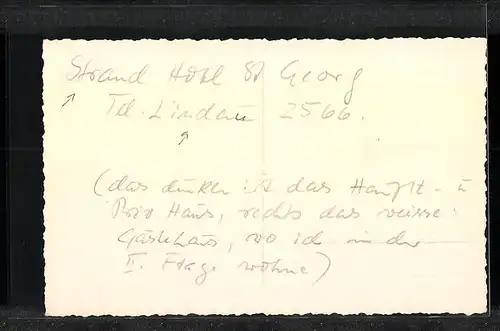 Strand Hotel St Georg
Tel. Lindau 2566.
(das dunkle ist das Haupt- u
Priv Haus, rechts das weisse
Gästehaus, wo ich in der
II. Etage wohne)